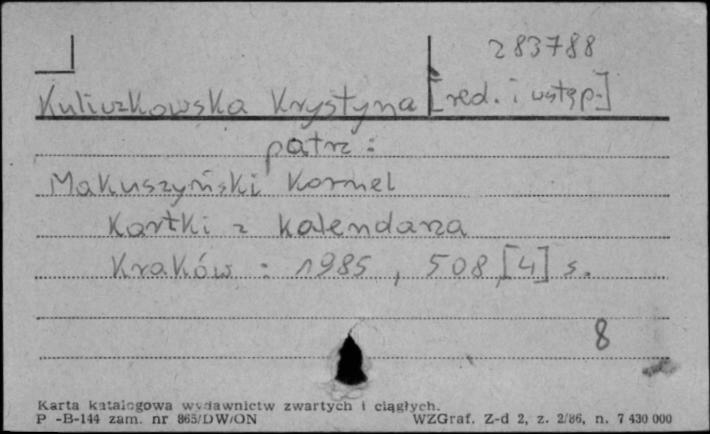 283788
Kuliczkowska Krystyna [red. i wstęp.]
patrz :
Makuszyński Kornel
Kartki z kalendarza
Kraków : 1985, 508,[4] s.
8
Karta katalogowa wydawnictw zwartych i ciągłych.
P -B-144 zam. nr 865/DW/ON WZGraf. Z-d 2, z. 2/86, n. 7 430 000